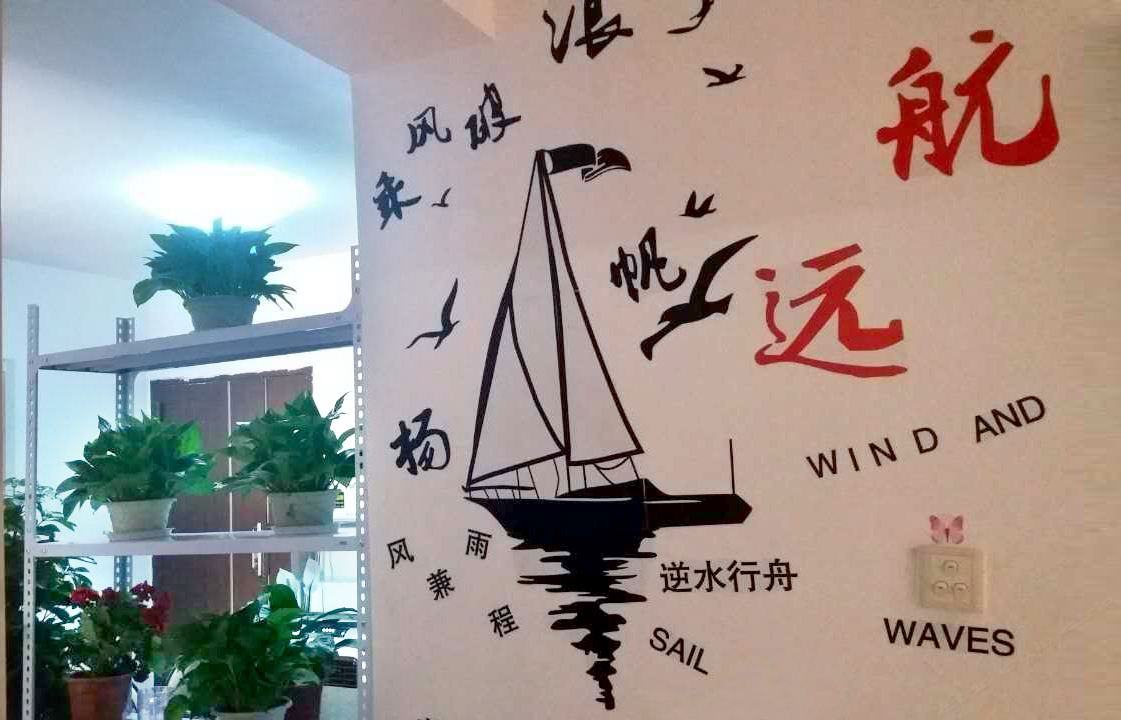 乘风破浪
扬帆
远航
WIND AND
WAVES
风雨兼程
逆水行舟
SAIL